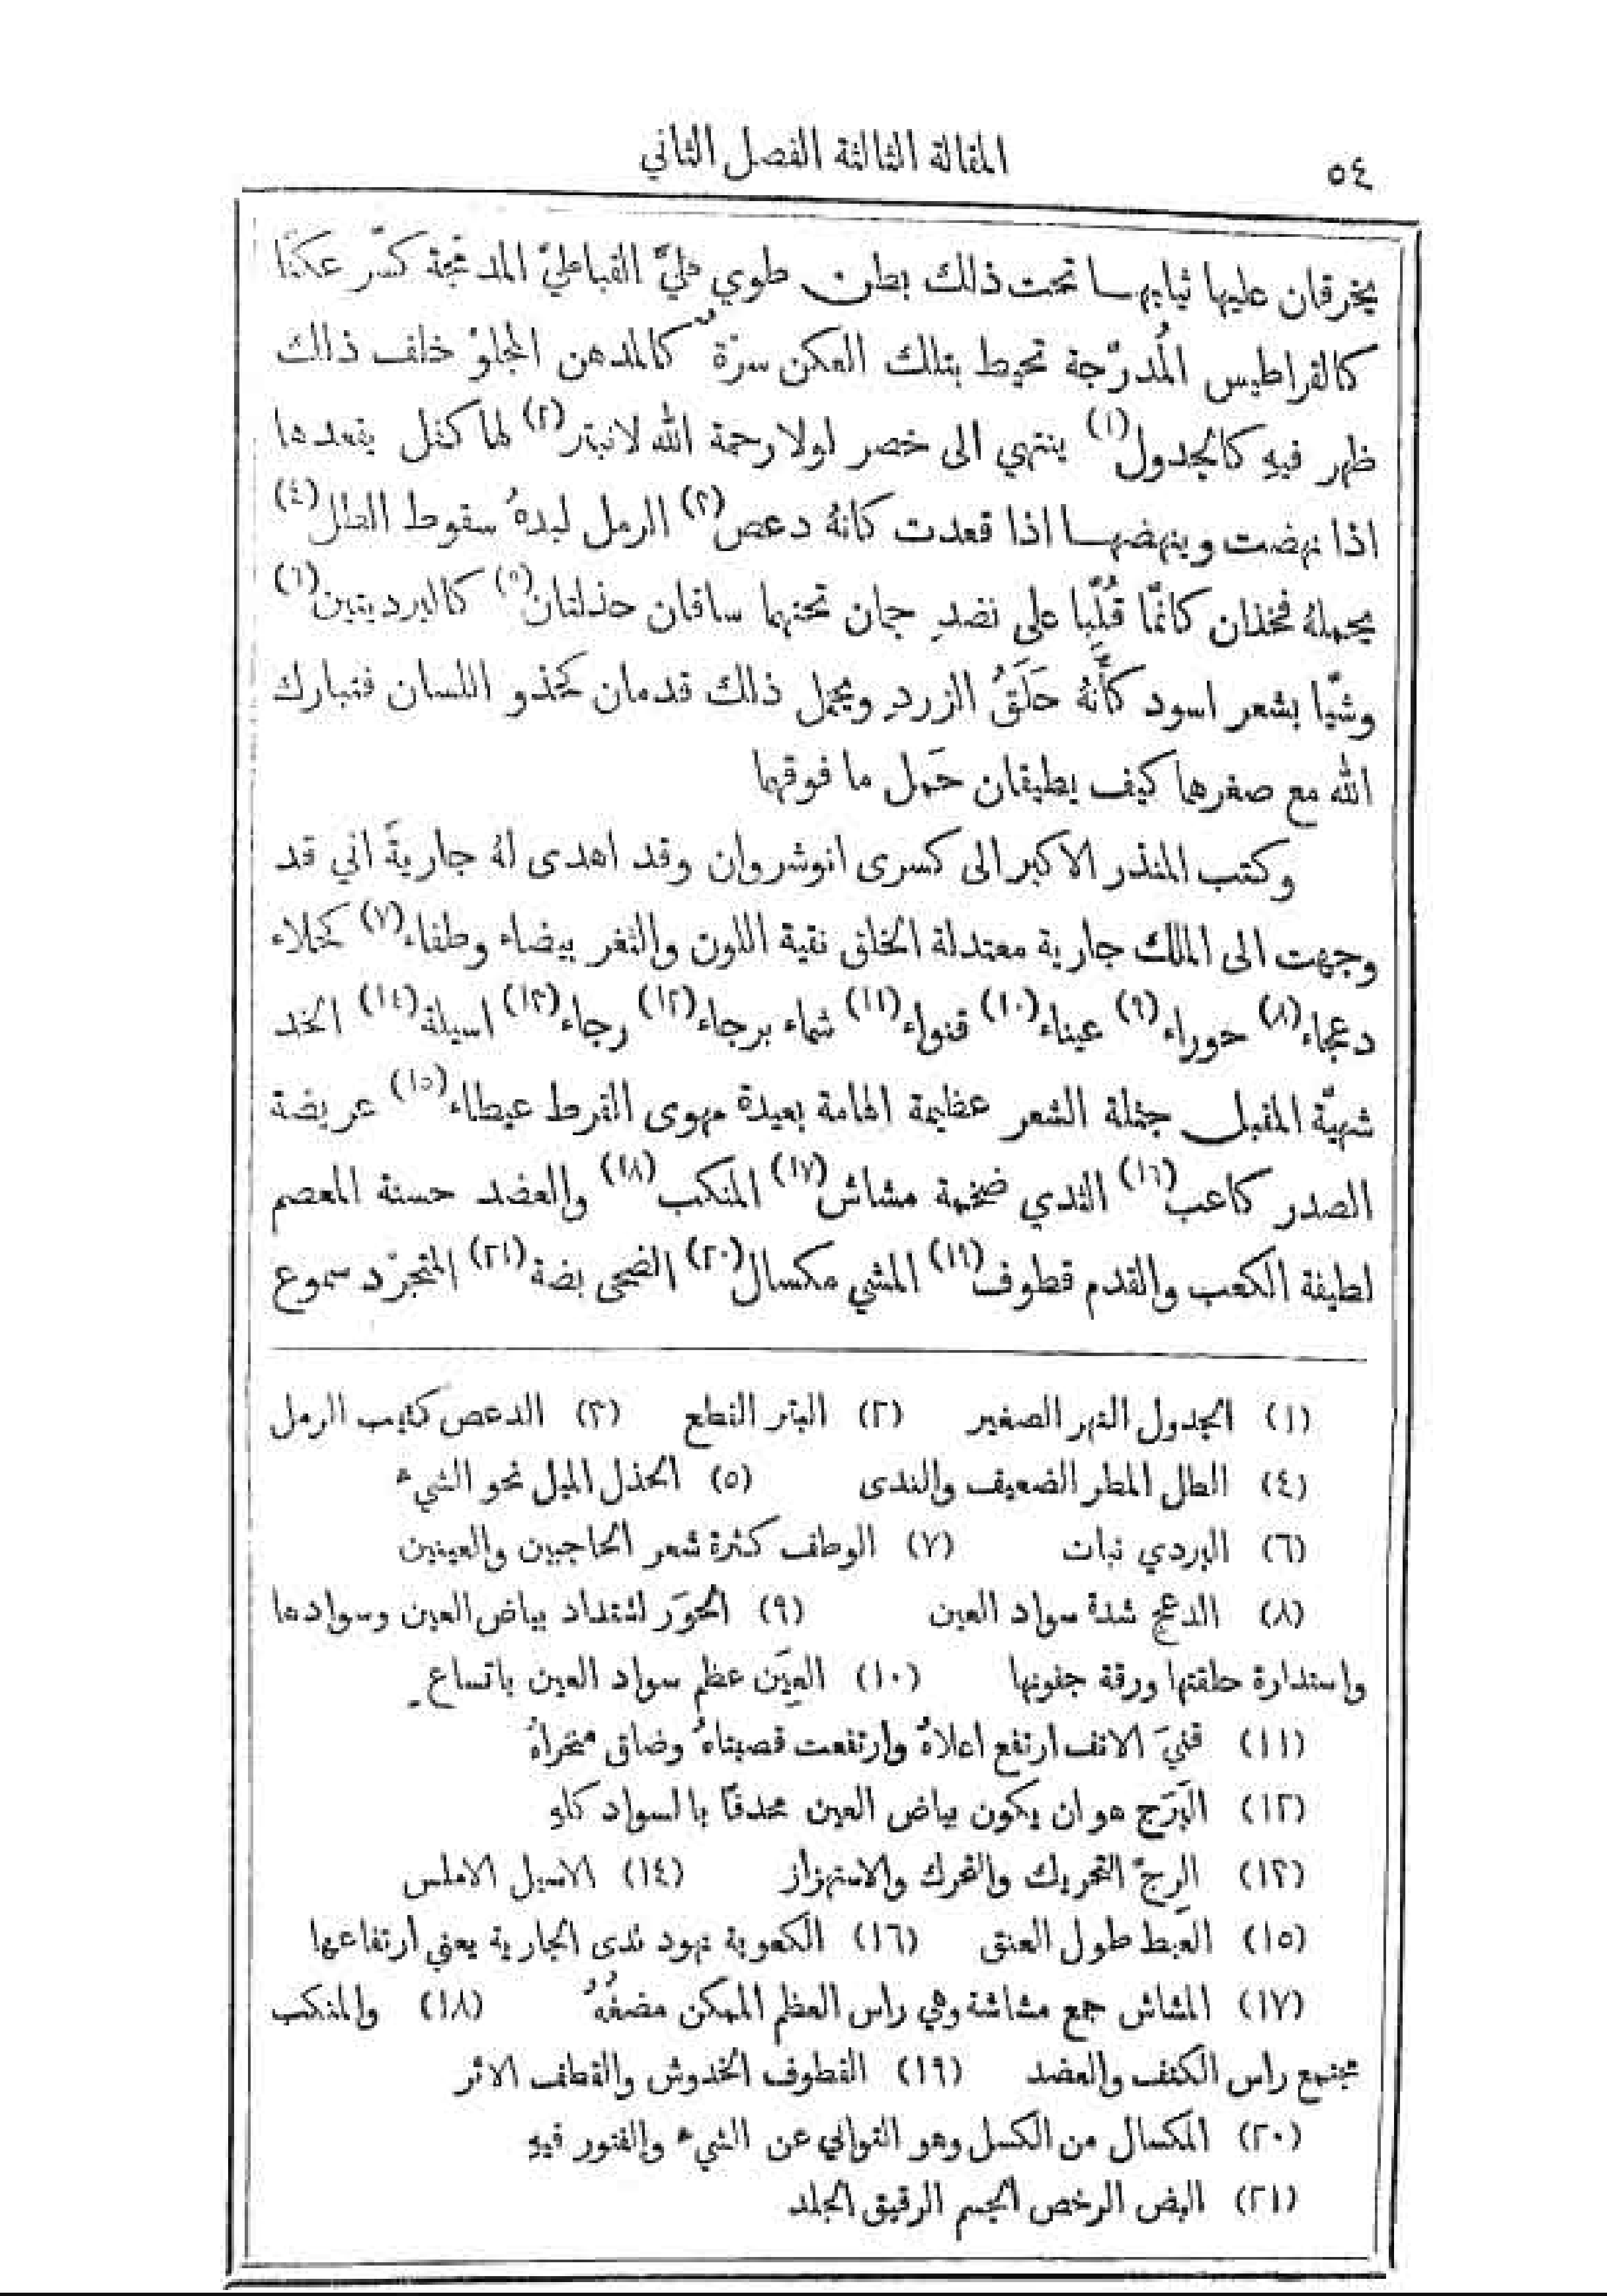 ٥٤
المقالة الثالثة الفصل الثاني
يخرقان عليها ثيابها تحت ذلك بطن طوي طيَّ القباطيّ المدمجة كسّر عكنًا
كالقراطيس المُدرّجة تحيط بتلك العكن سرّةٌ كالمدهن المجلوّ خلف ذلك
ظهر فيهِ كالجدول(١) ينتهي الى خصر لولا رحمة الله لانبتر(٢) لها كفل يقعدها
اذا نهضت وينهضها اذا قعدت كانهُ دعص(٣) الرمل لبدهُ سقوط الطل(٤)
يحملهُ فخذان كانمّا قُلِّبا على نضدِ جمان تحتهما ساقان خذلتان(٥) كالبرديتين(٦)
وشيّا بشعر اسود كأَنَّهُ حَلَقُ الزردِ ويحمل ذلك قدمان كحذو اللسان فتبارك
الله مع صغرهما كيف يطيقان حَمل ما فوقهما
وكتب المنذر الاكبر الى كسرى انوشروان وقد اهدى لهُ جاريةً اني قد
وجهت الى الملك جارية معتدلة الخلق نقية اللون والثغر بيضاء وطفاء(٧) كحلاء
دعجاء(٨) حوراء(٩) عيناء(١٠) قنواء(١١) شماء برجاء(١٢) رجاء(١٣) اسيلة(١٤) الخد
شهيّة المقبل جثلة الشعر عظيمة الهامة بعيدة مهوى القرط عيطاء(١٥) عريضة
الصدر كاعب(١٦) الثدي ضخمة مشاش(١٧) المنكب(١٨) والعضد حسنة المعصم
لطيفة الكعب والقدم قطوف(١٩) المشي مكسال(٢٠) الضحى بضة(٢١) المتجرّد سموع
(١) الجدول النهر الصغير (٢) البتر القطع (٣) الدعص كثيب الرمل
(٤) الطل المطر الضعيف والندى (٥) الخذل الميل نحو الشيء
(٦) البردي نبات (٧) الوطف كثرة شعر الحاجبين والعينين
(٨) الدعج شدة سواد العين (٩) الحَوَر اشتداد بياض العين وسوادها
واستدارة حلقتها ورقة جفونها (١٠) العِيَن عظم سواد العين باتساعٍ
(١١) قنيَ الانف ارتفع اعلاهُ وارتفعت قصبتاهُ وضاق منخراهُ
(١٢) البَرَج هو ان يكون بياض العين محدقًا بالسواد كلهِ
(١٣) الرِجّ التحريك والتحرك والاهتزاز (١٤) الاسيل الاملس
(١٥) العيط طول العنق (١٦) الكعوبة نهود ثدى الجارية يعني ارتفاعها
(١٧) المشاش جمع مشاشة وهي راس العظم الممكن مضغُهُ (١٨) والمنكب
مجتمع راس الكتف والعضد (١٩) القطوف الخدوش والقطف الاثر
(٢٠) المكسال من الكسل وهو التواني عن الشيء والفتور فيهِ
(٢١) البض الرخص الجسم الرقيق الجلد